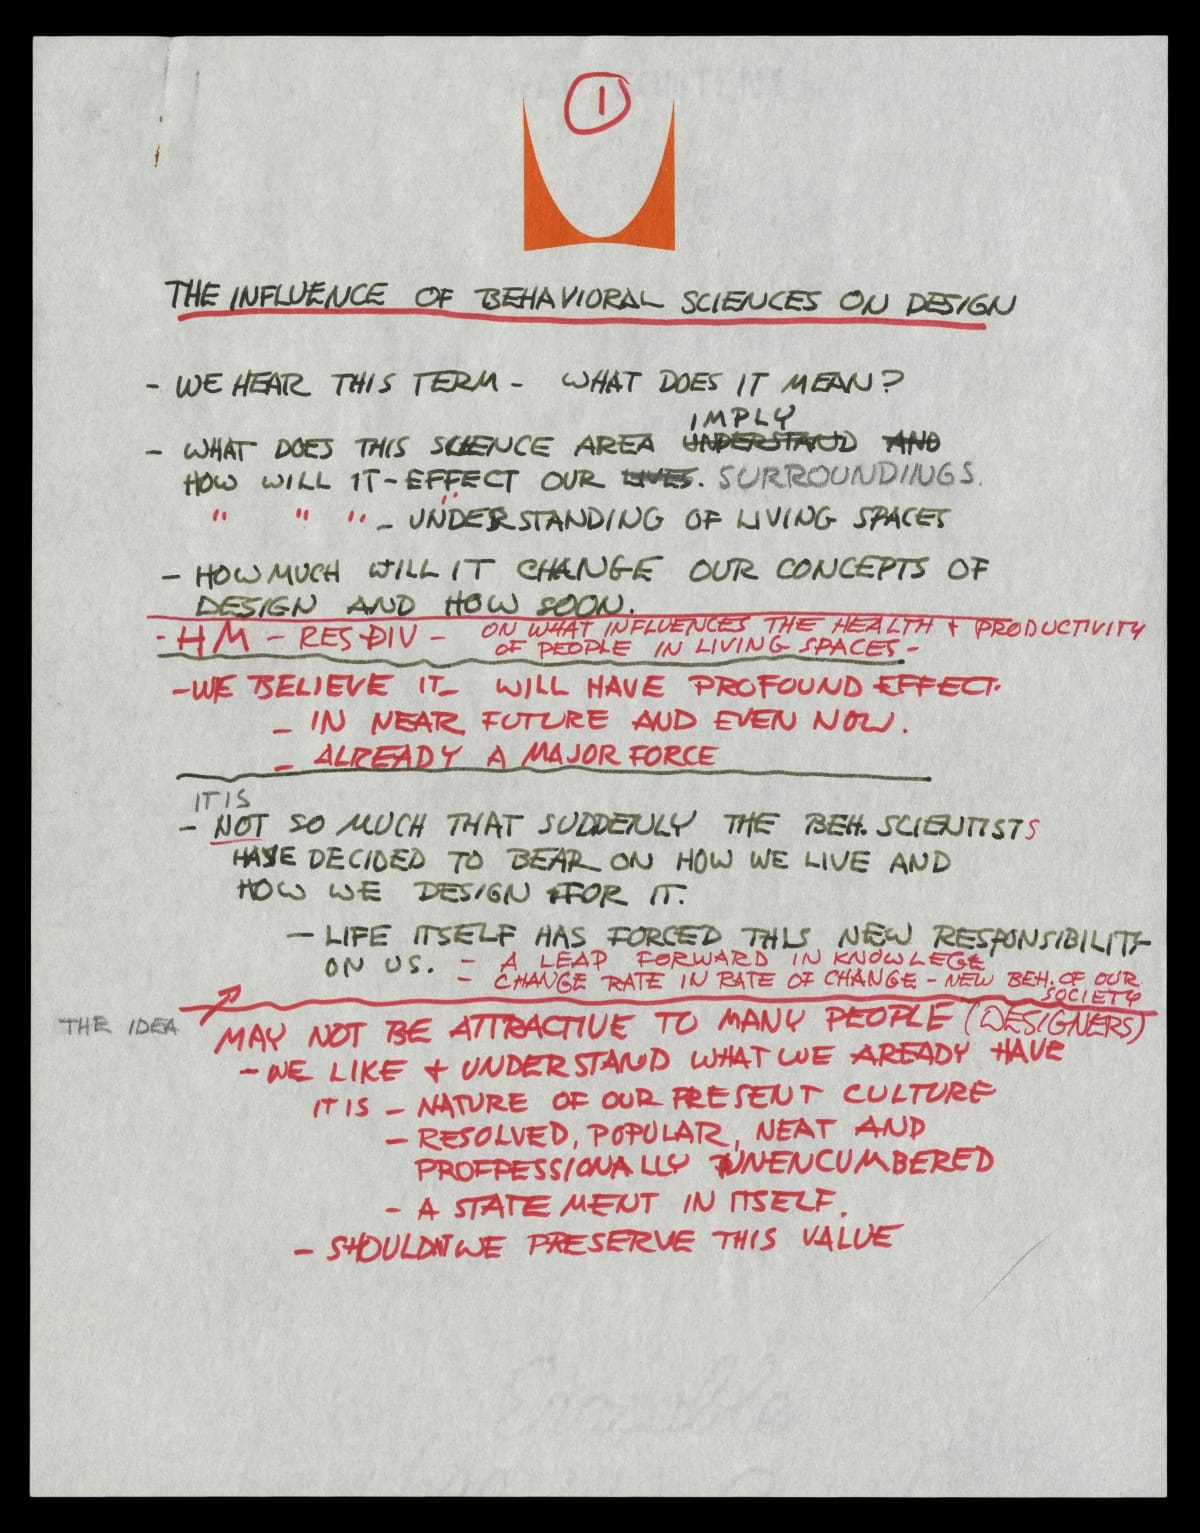 1
THE INFLUENCE OF BEHAVIORAL SCIENCES ON DESIGN
- WE HEAR THIS TERM - WHAT DOES IT MEAN?
IMPLY
- WHAT DOES THIS SCIENCE AREA UNDERSTAND AND
HOW WILL IT - EFFECT OUR LIVES. SURROUNDINGS.
" " " - UNDERSTANDING OF LIVING SPACES
- HOW MUCH WILL IT CHANGE OUR CONCEPTS OF
DESIGN AND HOW SOON.
- HM - RES DIV - ON WHAT INFLUENCES THE HEALTH + PRODUCTIVITY
OF PEOPLE IN LIVING SPACES -
- WE BELIEVE IT - WILL HAVE PROFOUND EFFECT.
- IN NEAR FUTURE AND EVEN NOW.
- ALREADY A MAJOR FORCE
IT IS
- NOT SO MUCH THAT SUDDENLY THE BEH. SCIENTISTS
HAVE DECIDED TO BEAR ON HOW WE LIVE AND
HOW WE DESIGN FOR IT.
- LIFE ITSELF HAS FORCED THIS NEW RESPONSIBILITY
ON US. - A LEAP FORWARD IN KNOWLEGE
- CHANGE RATE IN RATE OF CHANGE - NEW BEH. OF OUR
SOCIETY
THE IDEA MAY NOT BE ATTRACTIVE TO MANY PEOPLE (DESIGNERS)
- WE LIKE + UNDERSTAND WHAT WE AREADY HAVE
IT IS - NATURE OF OUR PRESENT CULTURE
- RESOLVED, POPULAR, NEAT AND
PROFPESSIONALLY UNENCUMBERED
- A STATEMENT IN ITSELF.
- SHOULDNT WE PRESERVE THIS VALUE